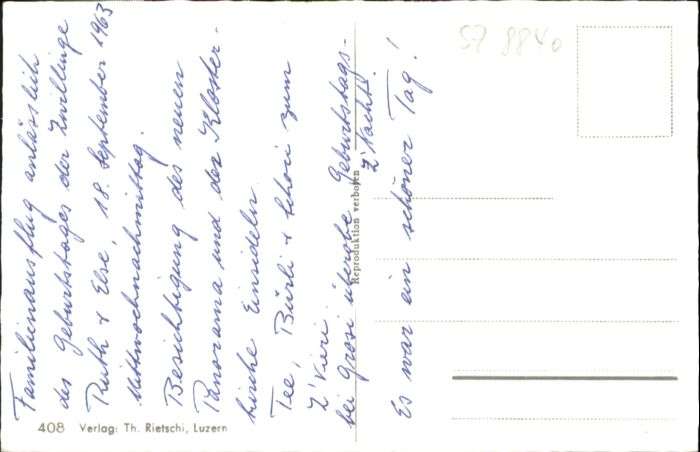 Familienausflug anlässlich
des Geburtstages der Zwillinge
Ruth + Else, 18. September 1963
Mittwochnachmittag.
Besichtigung des neuen
Panorama und der Kloster-
kirche Einsideln.
Tee, Bürli + Schoii zum
Z'Vieri.
bei Grosi überobe Geburtstags-
Z'Nacht.
Es war ein schöner Tag!
57 8840
Reproduktion verboten
408 Verlag: Th. Rietschi, Luzern